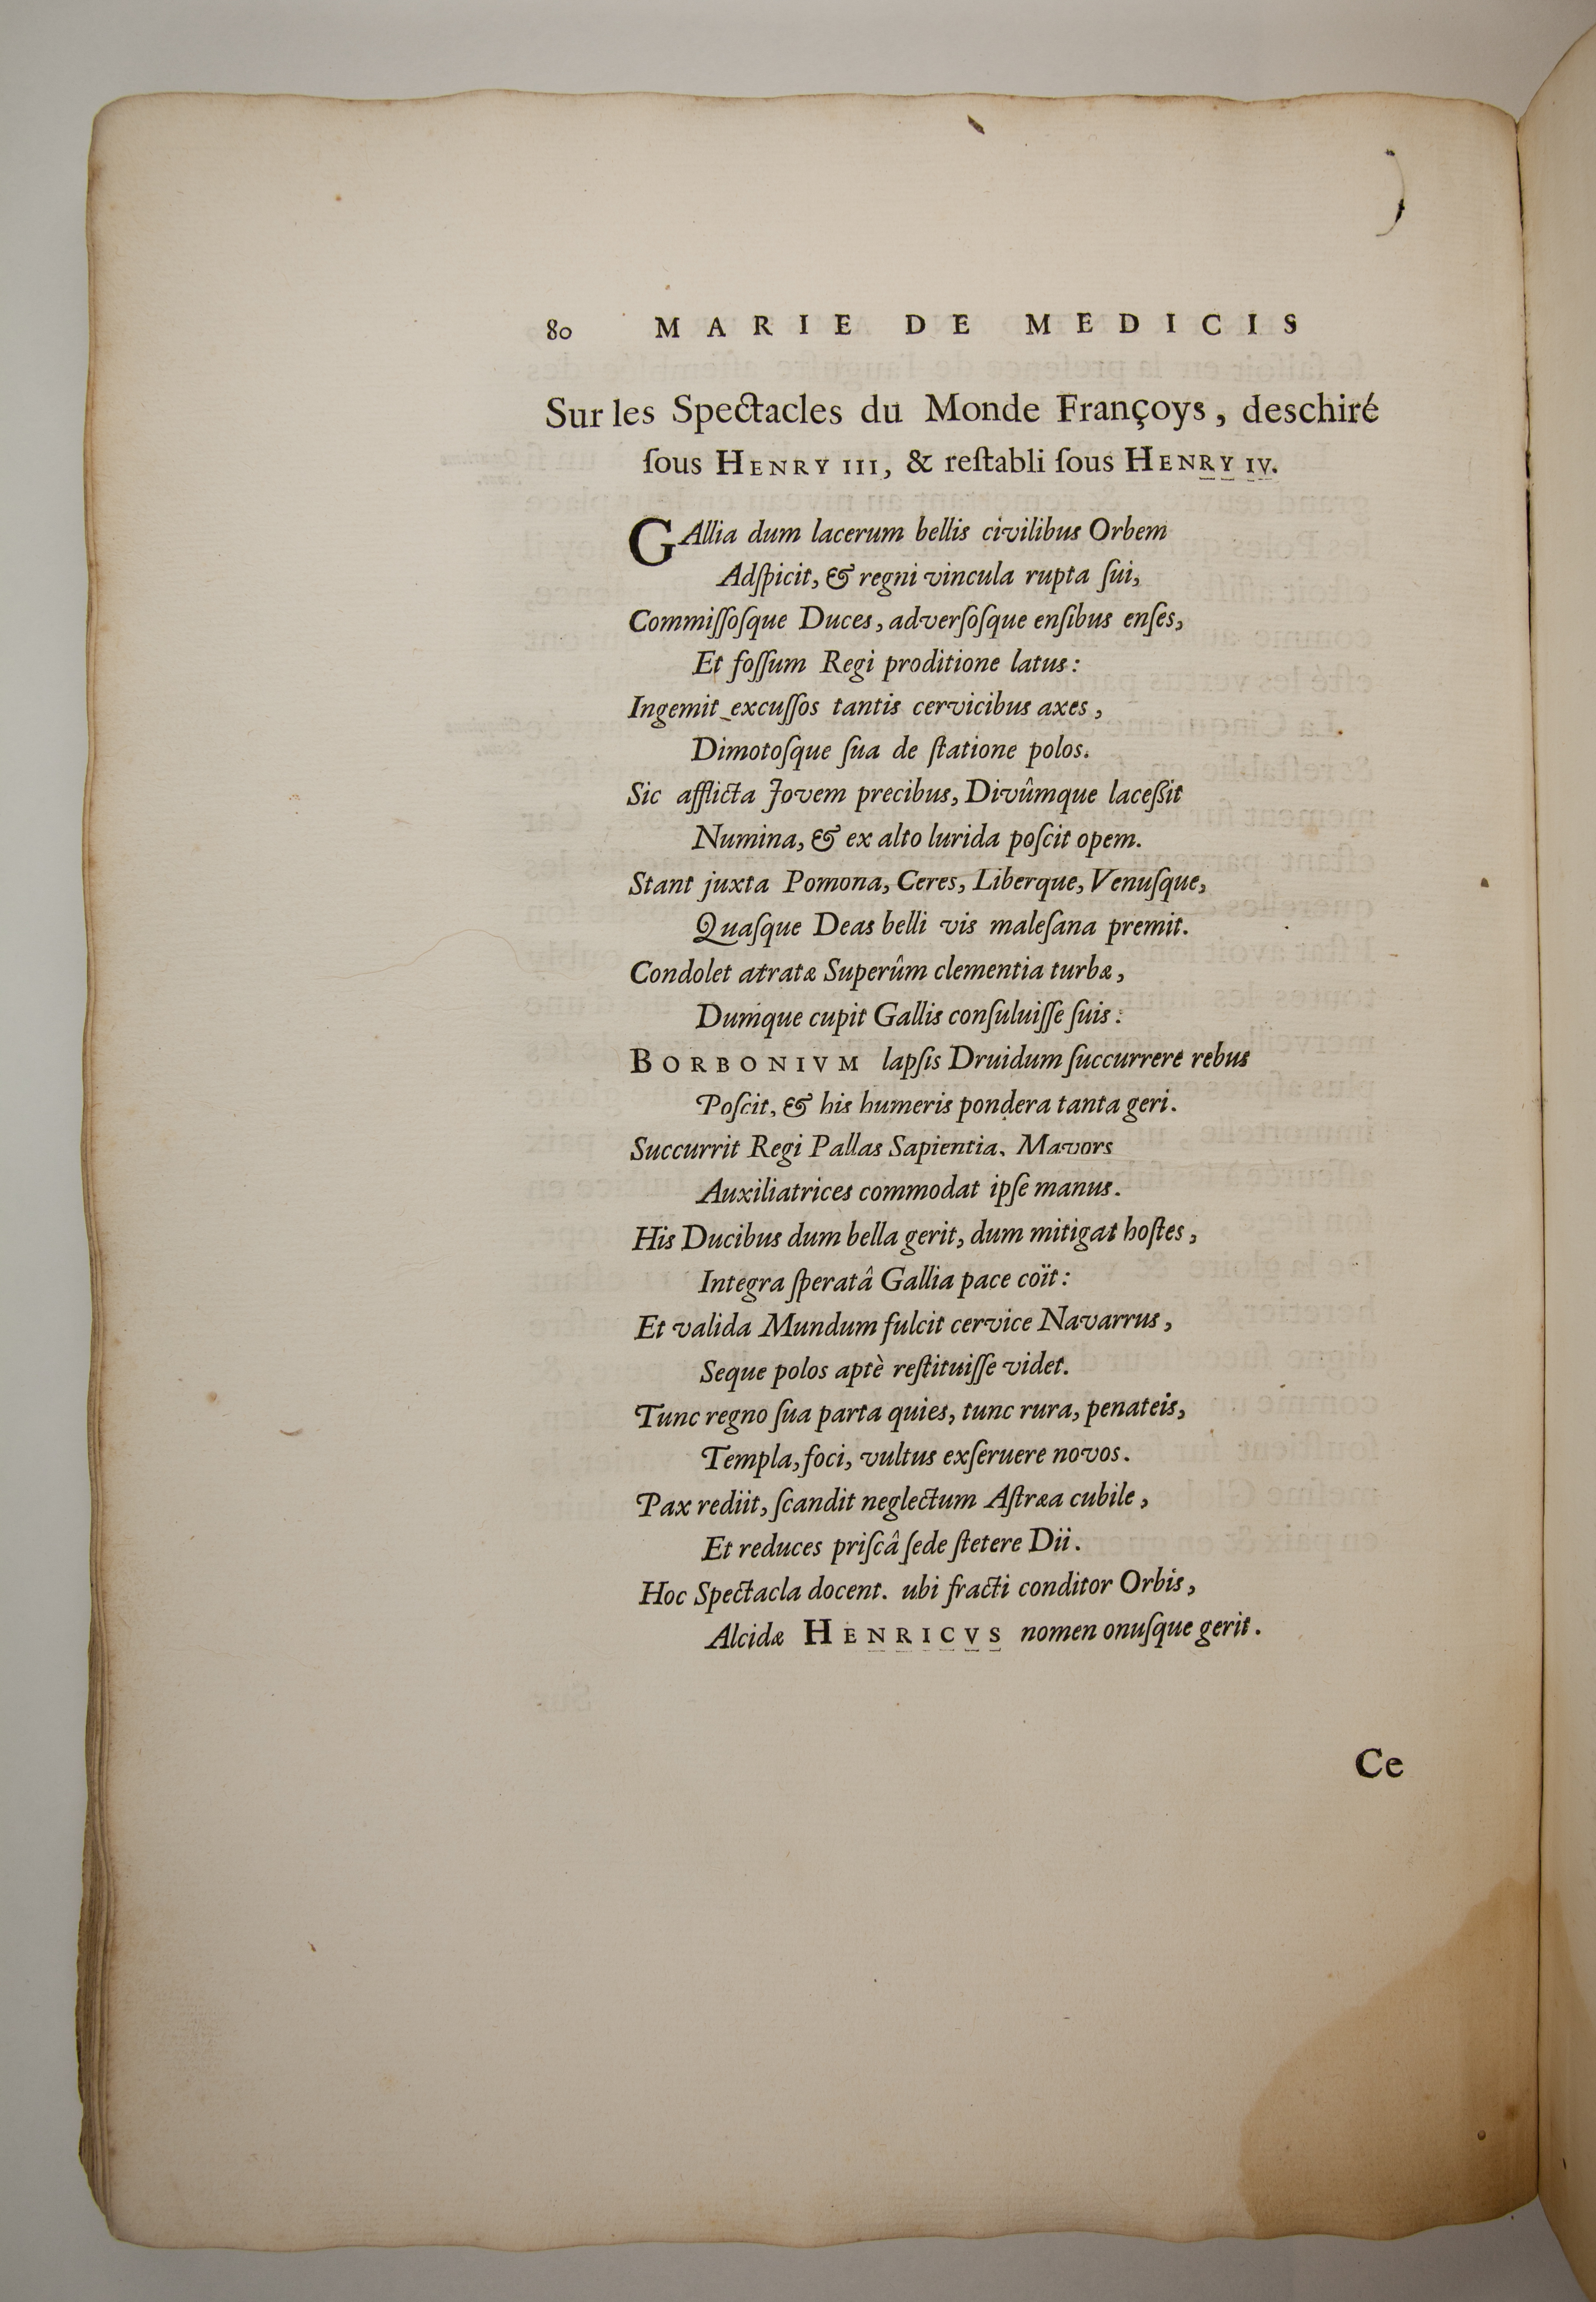 80 MARIE DE MEDICIS
Sur les Spectacles du Monde Françoys, deschiré
ſous HENRY III, & reſtabli ſous HENRY IV.
GAllia dum lacerum bellis civilibus Orbem
Adſpicit, & regni vincula rupta ſui,
Commiſſoſque Duces, adverſoſque enſibus enſes,
Et foſſum Regi proditione latus:
Ingemit excuſſos tantis cervicibus axes,
Dimotoſque ſua de ſtatione polos.
Sic afflicta Jovem precibus, Divûmque laceßit
Numina, & ex alto lurida poſcit opem.
Stant juxta Pomona, Ceres, Liberque, Venuſque,
Quaſque Deas belli vis maleſana premit.
Condolet atratæ Superûm clementia turbæ,
Dumque cupit Gallis conſuluiſſe ſuis:
BORBONIVM lapſis Druidum ſuccurrere rebus
Poſcit, & his humeris pondera tanta geri.
Succurrit Regi Pallas Sapientia, Mavors
Auxiliatrices commodat ipſe manus.
His Ducibus dum bella gerit, dum mitigat hoſtes,
Integra ſperatâ Gallia pace coït:
Et valida Mundum fulcit cervice Navarrus,
Seque polos aptè reſtituiſſe videt.
Tunc regno ſua parta quies, tunc rura, penateis,
Templa, foci, vultus exſeruere novos.
Pax rediit, ſcandit neglectum Aſtræa cubile,
Et reduces priſcâ ſede ſtetere Dii.
Hoc Spectacla docent. ubi fracti conditor Orbis,
Alcidæ HENRICVS nomen onuſque gerit.
Ce